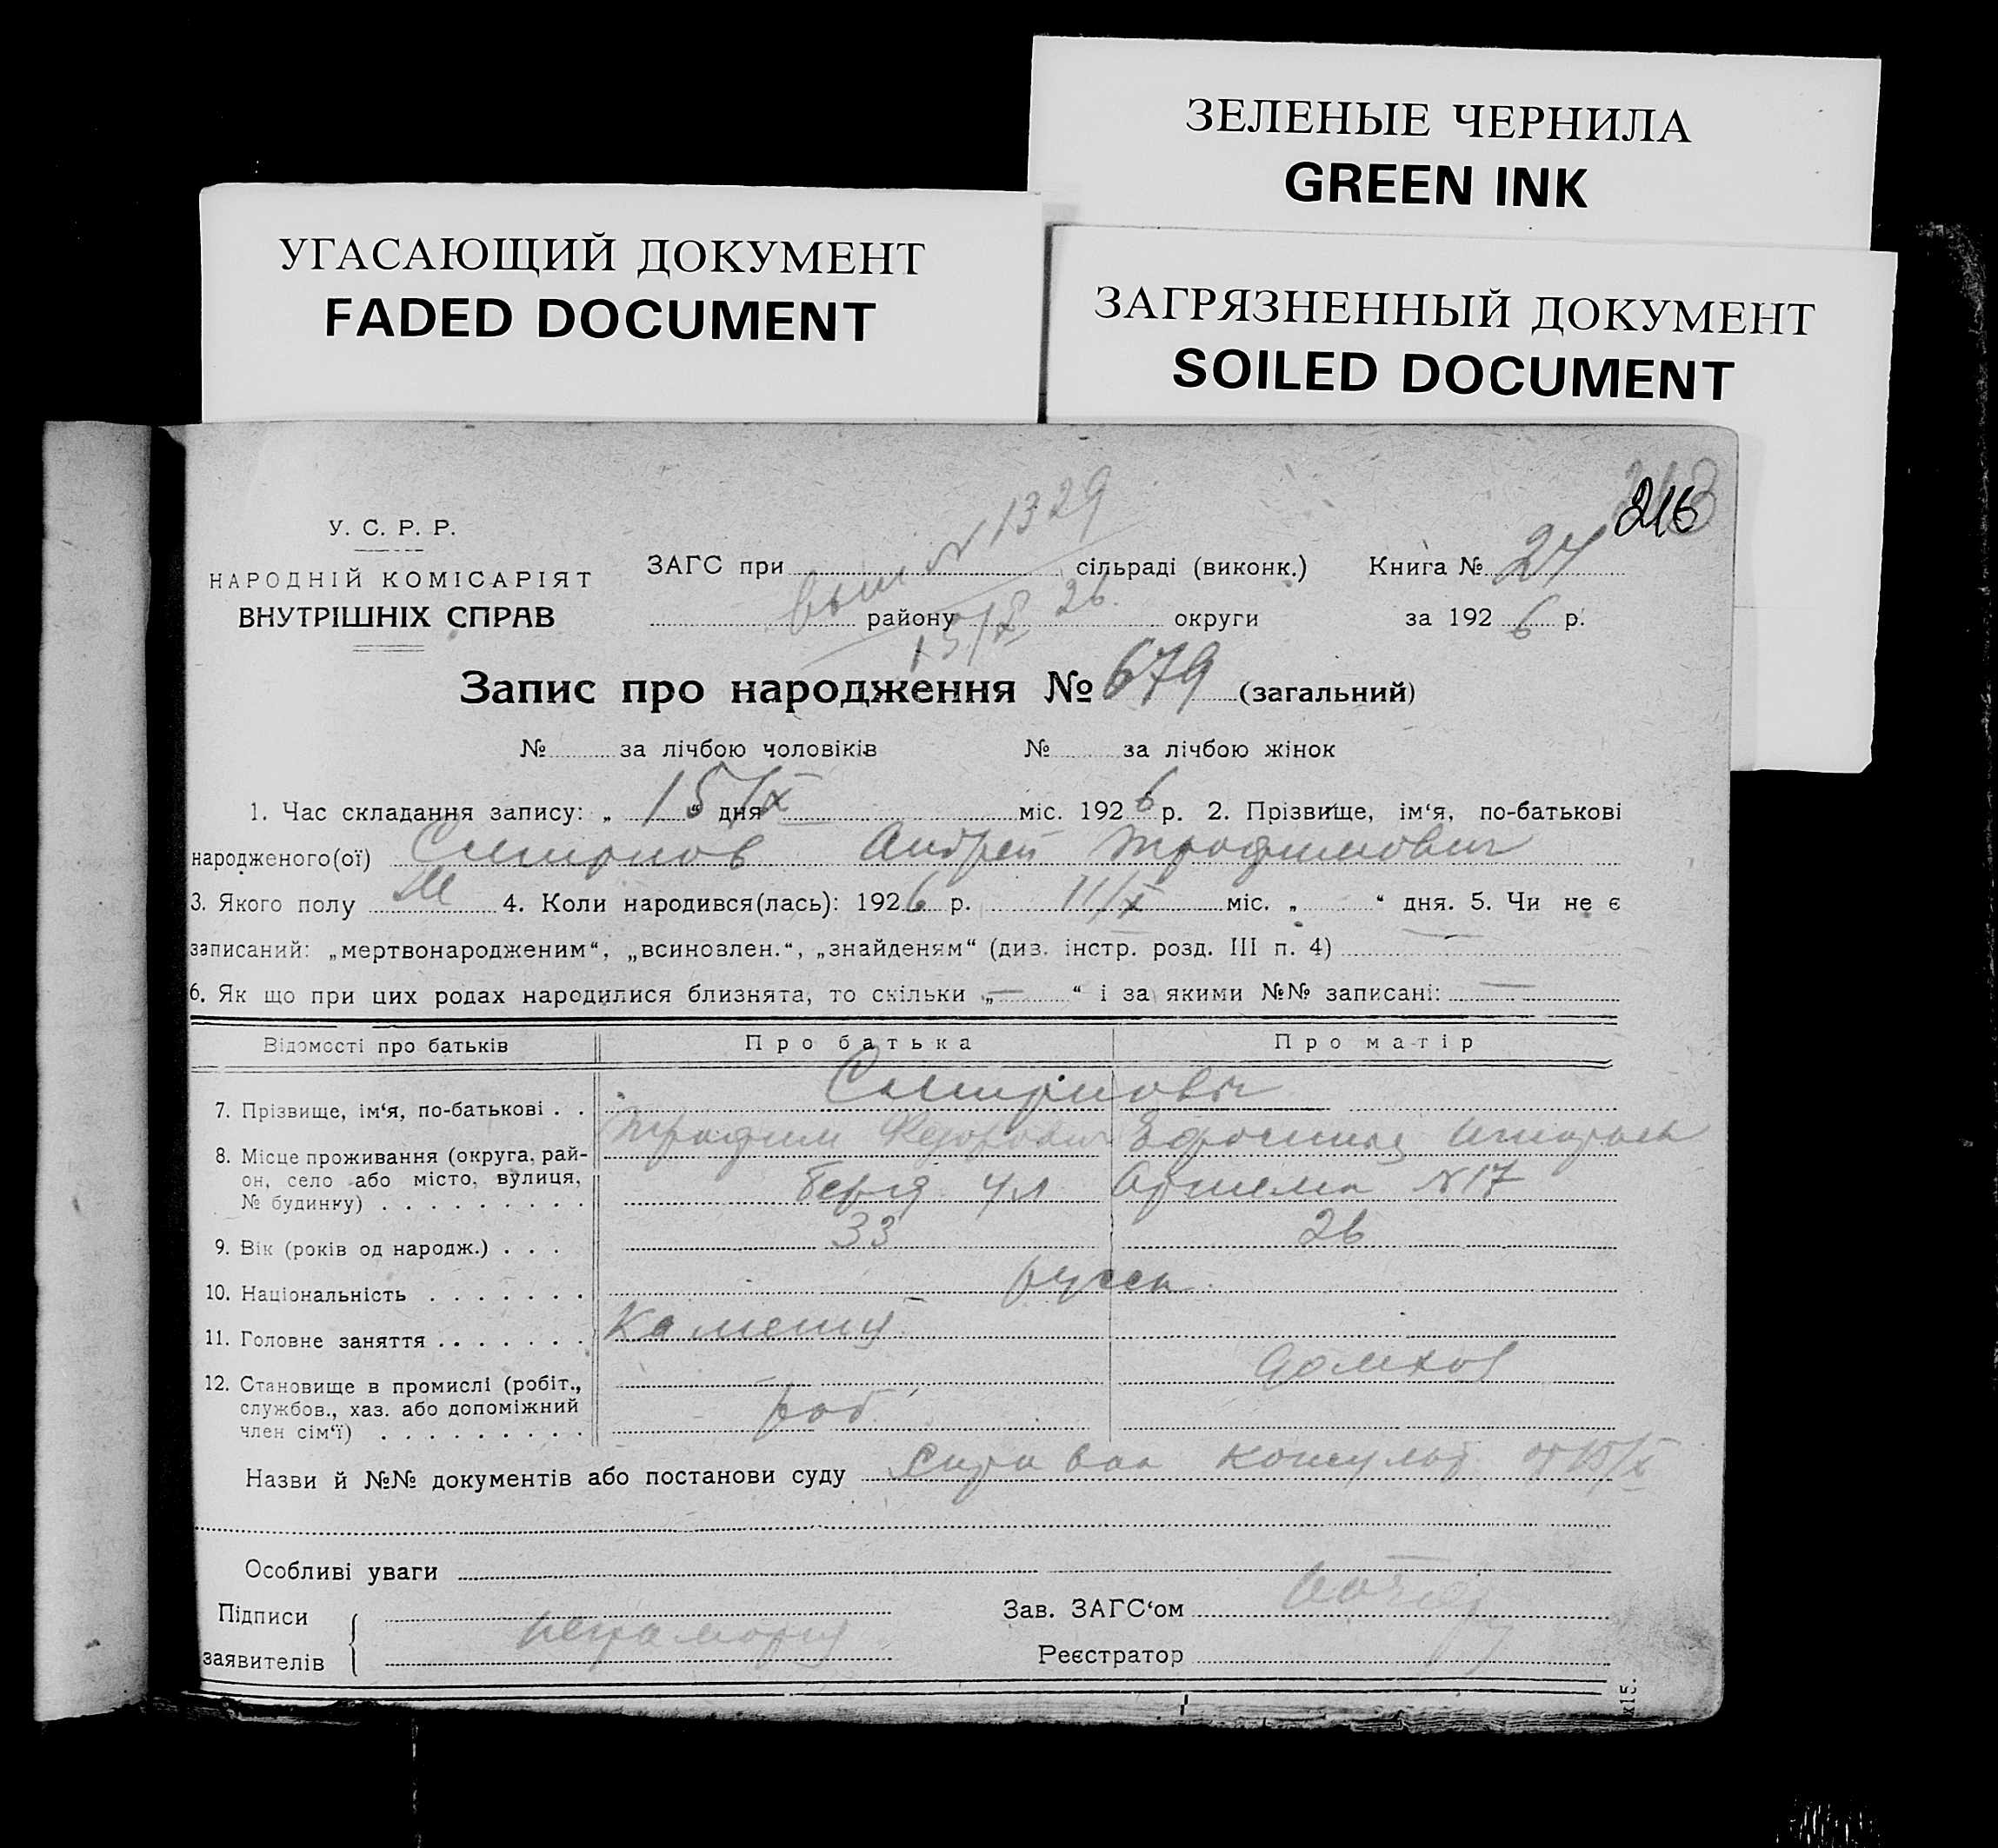 ЗЕЛЕНЫЕ ЧЕРНИЛА
GREEN INK
УГАСАЮЩИЙ ДОКУМЕНТ
FADED DOCUMENT
ЗАГРЯЗНЕННЫЙ ДОКУМЕНТ
SOILED DOCUMENT
216
У. С. Р. Р.
НАРОДНІЙ КОМІСАРІЯТ
ВНУТРІШНІХ СПРАВ
№ 1329
ЗАГС при сільраді (виконк.) Книга № 27
району округи за 1926 р.
15/IX 26.
Запис про народження № 679 (загальний)
№ за лічбою чоловіків № за лічбою жінок
1. Час складання запису: „15/IX“ дня міс. 1926 р. 2. Прізвище, ім'я, по-батькові
народженого(ої) Смирнов Андрей Трофимович
3. Якого полу М 4. Коли народився(лась): 1926 р. 11/X міс. „ “ дня. 5. Чи не є
записаний: „мертвонародженим“, „всиновлен.“, „знайденям“ (див. інстр. розд. III п. 4) —
6. Як що при цих родах народилися близнята, то скільки „—“ і за якими №№ записані: —
Відомості про батьків Про батька Про матір
7. Прізвище, ім'я, по-батькові . . Смирновы
Трофим Федорович Ефросиния
8. Місце проживання (округа, рай-
он, село або місто, вулиця,
№ будинку) . . . . . . . . . ул Артема № 17
9. Вік (років од народж.) . . . 33 26
10. Національність . . . . . . . русск
11. Головне заняття . . . . . . .
домхоз
12. Становище в промислі (робіт.,
службов., хаз. або допоміжний
член сім'ї) . . . . . . . . . раб.
Назви й №№ документів або постанови суду консульт от 15/X
Особливі уваги
Підписи
заявителів неграмотн
Зав. ЗАГС'ом
Реєстратор